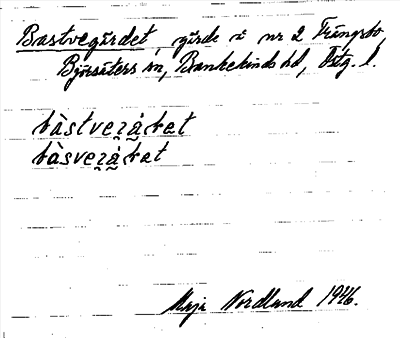 Bastvegärdet, gärde i nr 2 Trängsbo,
Björsäters sn, Bankekinds hd, Östg. l.
bàstveʒá̤ṛet
bàsveʒá̤ṛet
Maja Nordlund 1946.